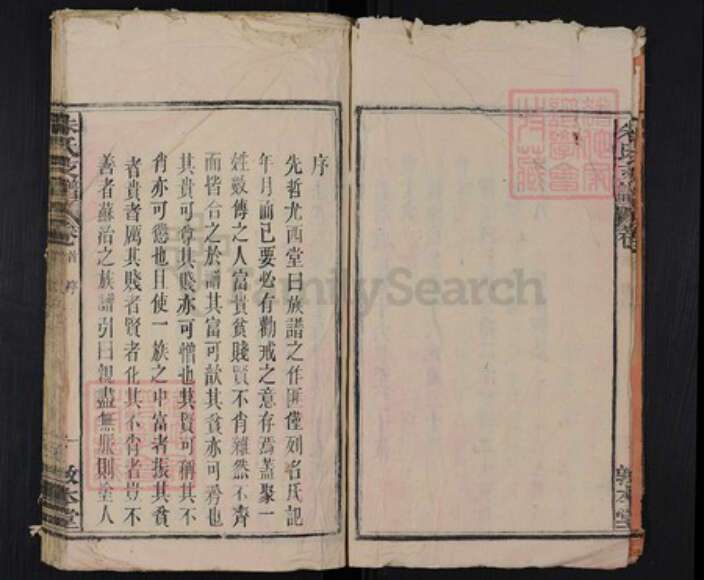 序
先哲尤西堂曰族譜之作匪僅列名氏記
年月而已要必有勸戒之意存焉蓋聚一
姓數傳之人富貴貧賤賢不肖雜然不齊
而皆合之於譜其富可歆其貧亦可矜也
其貴可尊其賤亦可憎也其賢可稱其不
肖亦可懲也且使一族之中富者振其貧
者貴者厲其賤者賢者化其不肖者豈不
善者蘇洽之族譜引曰親盡無服則塗人
朱氏支譜 卷首 序
一 敦本堂
朱氏支譜 卷
敦本堂
FamilySearch